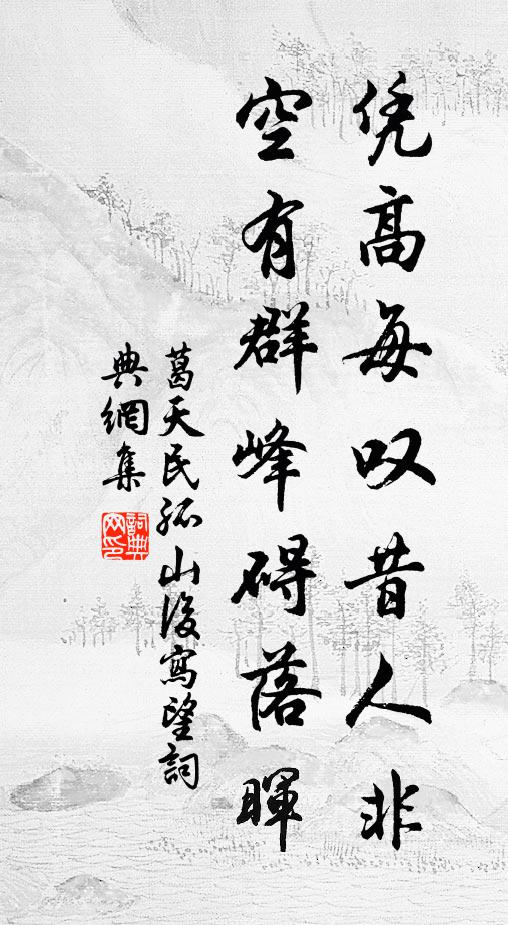 凭高每叹昔人非
空有群峰碍落晖
葛天民孤山後寫望詞
典網集
詞典
网印